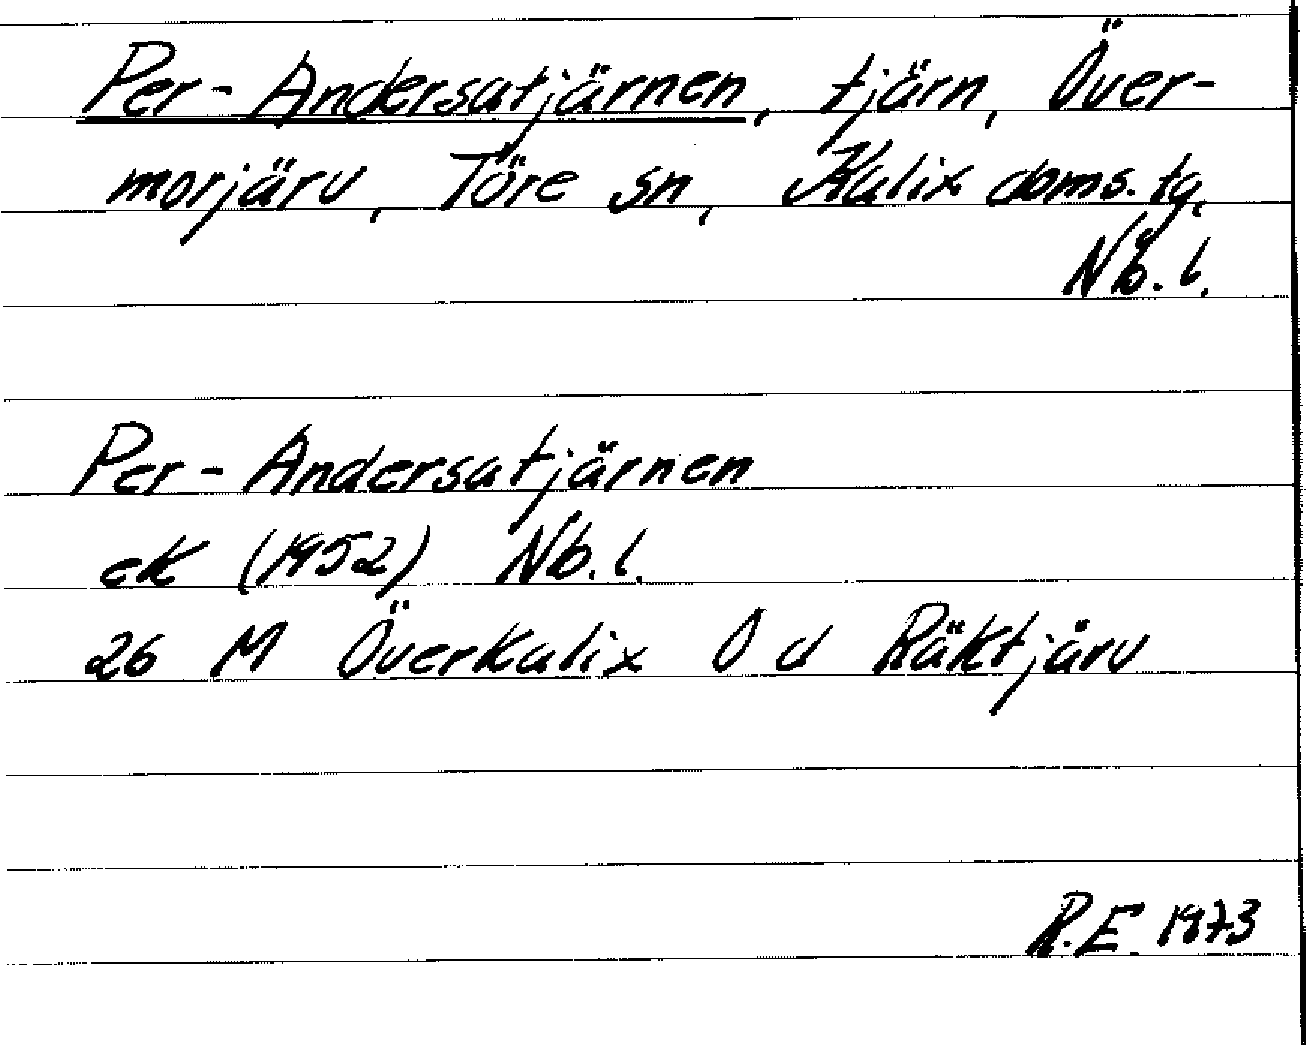 Per-Andersatjärnen, tjärn, Över-
morjärv, Töre sn, Kalix doms.tg.
Nb.l.
Per-Andersatjärnen
ek (1952) Nb.l.
26 M Överkalix O d Räktjärv
R.E. 1973